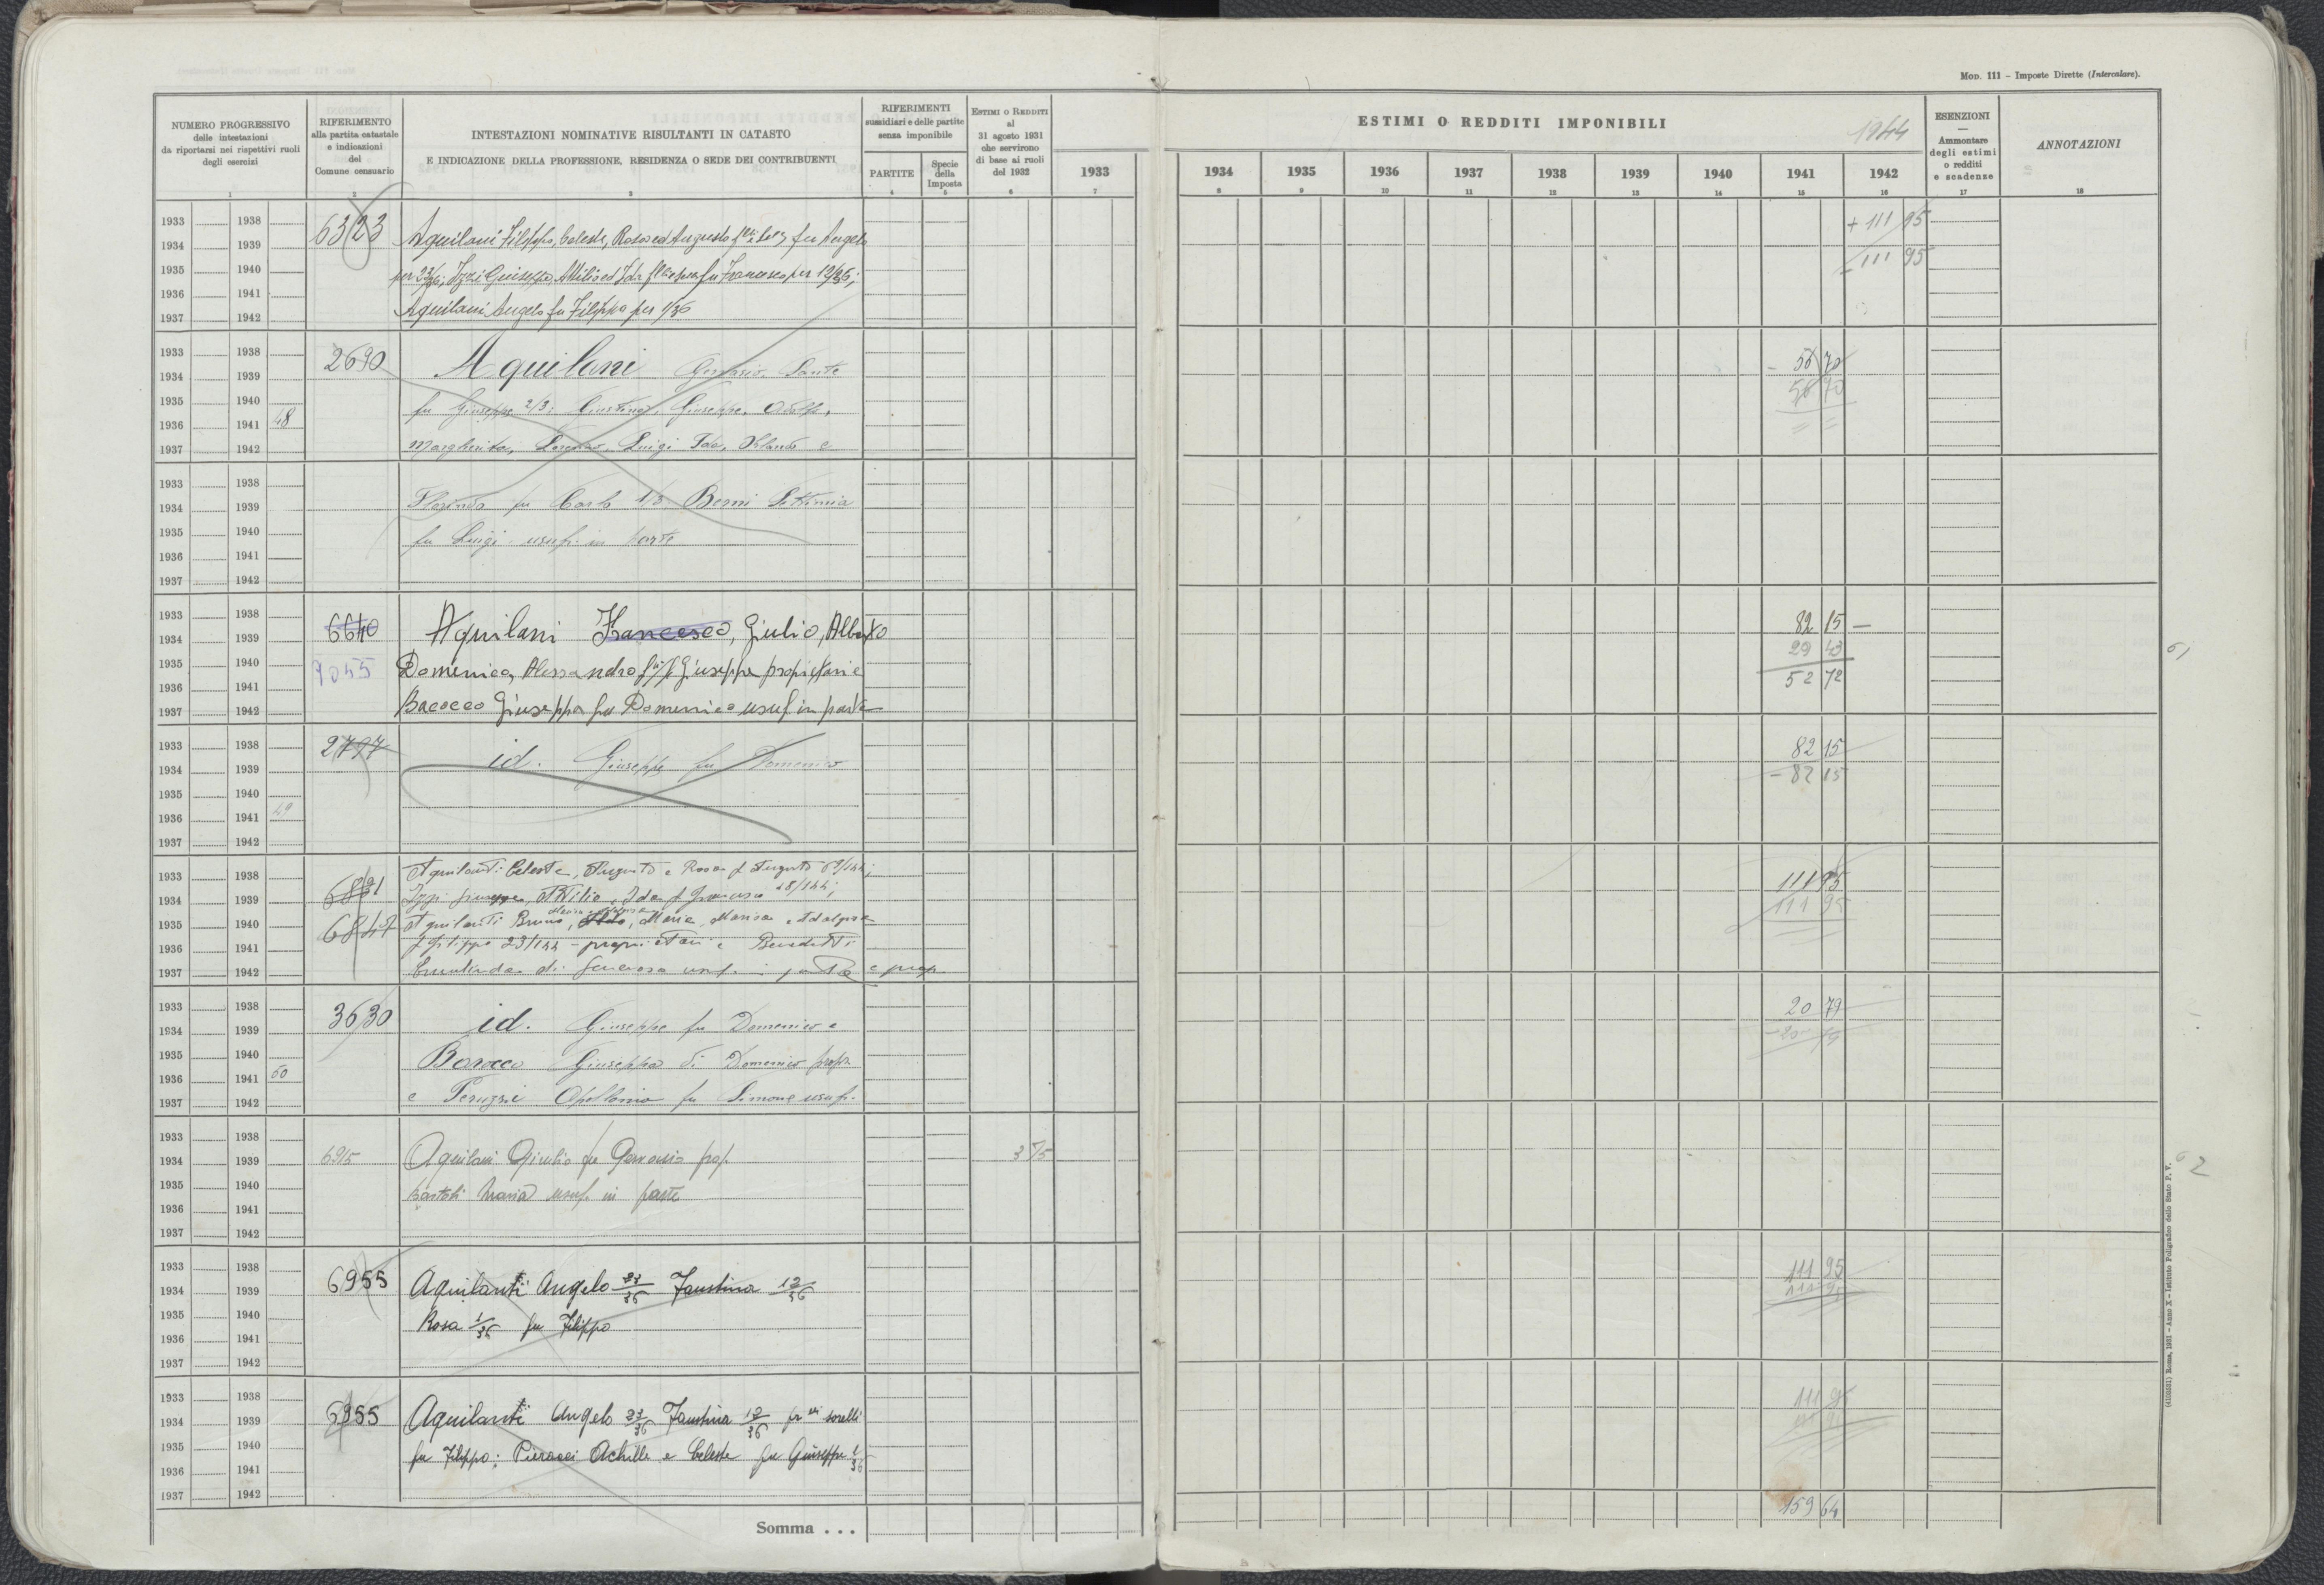 MOD. 111 – Imposte Dirette (Intercalare).
NUMERO PROGRESSIVO
delle intestazioni
da riportarsi nei rispettivi ruoli
degli esercizi
1
RIFERIMENTO
alla partita catastale
e indicazioni
del
Comune censuario
2
INTESTAZIONI NOMINATIVE RISULTANTI IN CATASTO
E INDICAZIONE DELLA PROFESSIONE, RESIDENZA O SEDE DEI CONTRIBUENTI
3
RIFERIMENTI
sussidiari e delle partite
senza imponibile
PARTITE
4
Specie
della
Imposta
5
ESTIMI O REDDITI
al
31 agosto 1931
che servirono
di base ai ruoli
del 1932
6
1933
7
ESTIMI O REDDITI IMPONIBILI
1944
1934 1935 1936 1937 1938 1939 1940 1941 1942
8 9 10 11 12 13 14 15 16
ESENZIONI
—
Ammontare
degli estimi
o redditi
e scadenze
17
ANNOTAZIONI
18
1933 1938
1934 1939
1935 1940
1936 1941
1937 1942
6323
Aquilani Filippo, Celeste, Rosa ed Augusto fu Angelo
Izzi Giuseppe, Attilio ed Ida fu Francesco per 12/36;
Aquilani Angelo fu Filippo per 1/36
+ 111 95
- 111 95
1933 1938
1934 1939
1935 1940
1936 1941 48
1937 1942
2690
Aquilani Gervasio, Sante
fu Giuseppe 2/3; Giustina, Giuseppe,
Margherita, Lorenzo, Luigi e
- 56 70
56 70
1933 1938
1934 1939
1935 1940
1936 1941
1937 1942
fu Carlo 1/3 Berni Settimia
fu Luigi usuf. in parte
1933 1938
1934 1939
1935 1940
1936 1941
1937 1942
6640
7045
Aquilani Francesco, Giulio, Alberto
Domenico, Alessandro Giuseppe proprietari e
Bacocco Giuseppa fu Domenico usuf in parte
82 15 —
29 43
52 72
1933 1938
1934 1939
1935 1940
1936 1941 49
1937 1942
2797
id. Giuseppe fu Domenico
82 15
- 82 15
1933 1938
1934 1939
1935 1940
1936 1941
1937 1942
6847
Aquilanti Celeste, Augusto e Rosa f Augusto 69/144;
Izzi Giuseppe, Attilio, Ida f Francesco 48/144;
Aquilanti Bruno, Maria, Marisa, Adalgisa
f Filippo 23/144 - proprietari e Benedetti
Ermelinda di Generoso usuf. in parte e prop.
111 95
111 95
1933 1938
1934 1939
1935 1940
1936 1941 50
1937 1942
3630
id. Giuseppe fu Domenico e
Bacocco Giuseppa di Domenico propr
e Peruzzi Apollonia fu Simone usufr.
20 79
- 20 79
1933 1938
1934 1939
1935 1940
1936 1941
1937 1942
6915
Aquilani Giulio fu Gervasio prop.
Bartoli Maria usuf. in parte
3 75
1933 1938
1934 1939
1935 1940
1936 1941
1937 1942
6955
Aquilanti Angelo 23/36 Faustina 12/36
Rosa 1/36 fu Filippo
111 95
111 95
1933 1938
1934 1939
1935 1940
1936 1941
1937 1942
6955
Aquilanti Angelo 23/36 Faustina 12/36 sorelli
fu Filippo; Pieracci Achille e Celeste fu Giuseppe 1/36
111 95
Somma . . .
159 64
(4103531) Roma, 1931 – Anno X – Istituto Poligrafico dello Stato P. V.